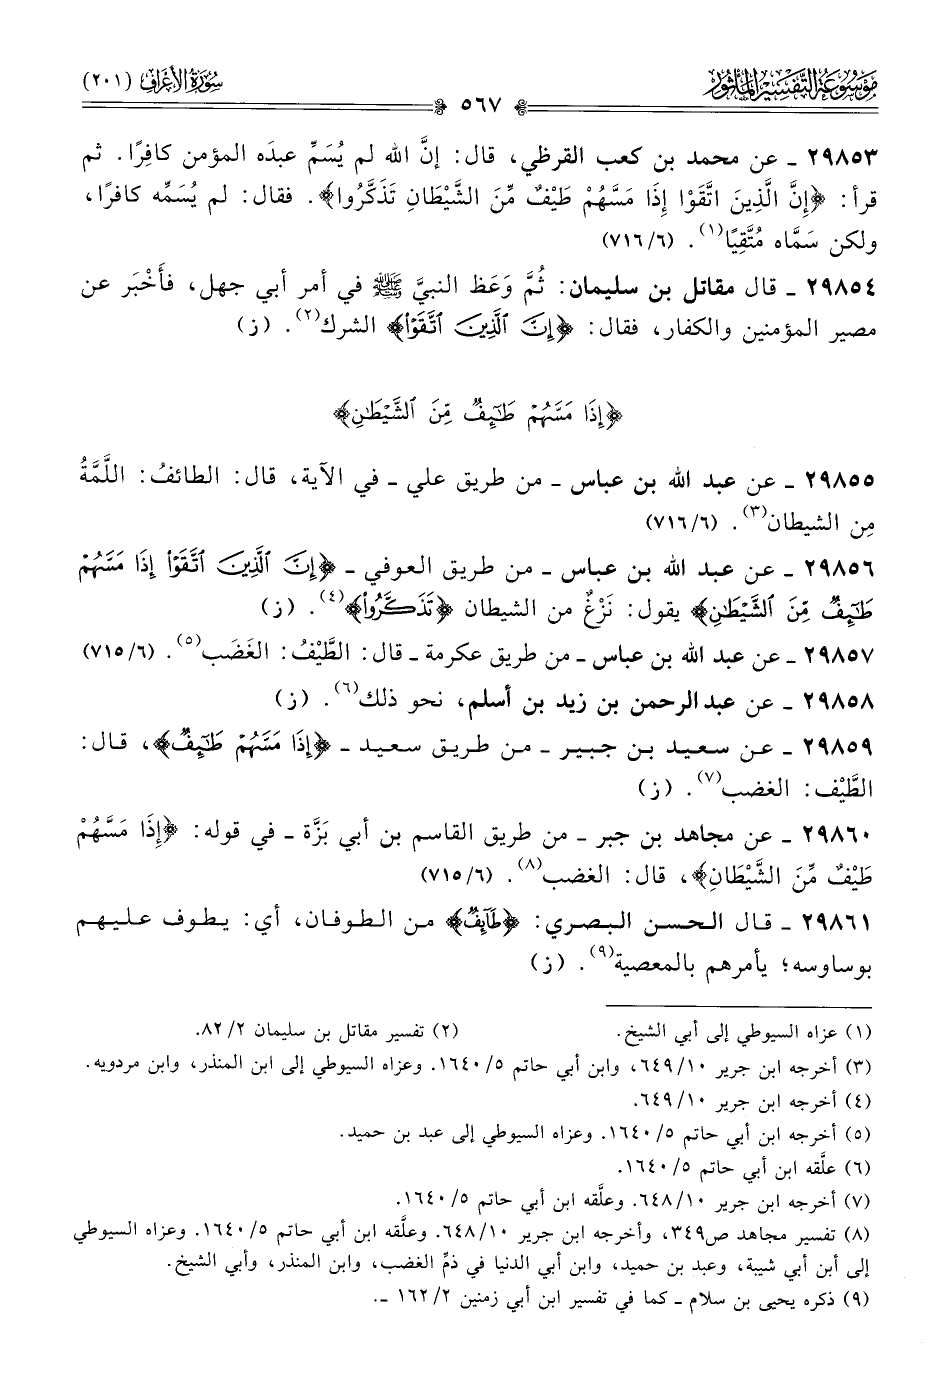 مَوْسُوعَة التَّفْسِيْر المَأْثُور
سُورَة الأَعْرَاف (٢٠١)
٥٦٧
٢٩٨٥٣ ـ عن محمد بن كعب القرظي، قال: إنَّ الله لم يُسَمِّ عبدَه المؤمن كافِرًا. ثم
قرأ: ﴿إِنَّ الَّذِينَ اتَّقَوْا إِذَا مَسَّهُمْ طَيْفٌ مِّنَ الشَّيْطَانِ تَذَكَّرُوا﴾. فقال: لم يُسَمِّه كافرا،
ولكن سَمَّاه مُتَّقِيًا(١). (٧١٦/٦)
٢٩٨٥٤ ـ قال مقاتل بن سليمان: ثُمَّ وَعَظ النبيَّ ﷺ في أمر أبي جهل، فأَخْبَر عن
مصير المؤمنين والكفار، فقال: ﴿إِنَّ ٱلَّذِينَ ٱتَّقَوْا۟﴾ الشرك(٢). (ز)
﴿إِذَا مَسَّهُمْ طَـٰٓئِفٌ مِّنَ ٱلشَّيْطَـٰنِ﴾
٢٩٨٥٥ ـ عن عبد الله بن عباس ـ من طريق علي ـ في الآية، قال: الطائفُ: اللَّمَّةُ
مِن الشيطان(٣). (٧١٦/٦)
٢٩٨٥٦ ـ عن عبد الله بن عباس ـ من طريق العوفي ـ ﴿إِنَّ ٱلَّذِينَ ٱتَّقَوْا۟ إِذَا مَسَّهُمْ
طَـٰٓئِفٌ مِّنَ ٱلشَّيْطَـٰنِ﴾ يقول: نَزْغٌ من الشيطان ﴿تَذَكَّرُوا۟﴾(٤). (ز)
٢٩٨٥٧ ـ عن عبد الله بن عباس ـ من طريق عكرمة ـ قال: الطَّيْفُ: الغَضَب(٥). (٧١٥/٦)
٢٩٨٥٨ ـ عن عبد الرحمن بن زيد بن أسلم، نحو ذلك(٦). (ز)
٢٩٨٥٩ ـ عن سعيد بن جبير ـ من طريق سعيد ـ ﴿إِذَا مَسَّهُمْ طَـٰٓئِفٌ﴾، قال:
الطَّيْف: الغضب(٧). (ز)
٢٩٨٦٠ ـ عن مجاهد بن جبر ـ من طريق القاسم بن أبي بَزَّة ـ في قوله: ﴿إِذَا مَسَّهُمْ
طَيْفٌ مِّنَ الشَّيْطَانِ﴾، قال: الغضب(٨). (٧١٥/٦)
٢٩٨٦١ ـ قال الحسن البصري: ﴿طَـٰٓئِفٌ﴾ من الطوفان، أي: يطوف عليهم
بوساوسه؛ يأمرهم بالمعصية(٩). (ز)
(١) عزاه السيوطي إلى أبي الشيخ. (٢) تفسير مقاتل بن سليمان ٨٢/٢.
(٣) أخرجه ابن جرير ٦٤٩/١٠، وابن أبي حاتم ١٦٤٠/٥. وعزاه السيوطي إلى ابن المنذر، وابن مردويه.
(٤) أخرجه ابن جرير ٦٤٩/١٠.
(٥) أخرجه ابن أبي حاتم ١٦٤٠/٥. وعزاه السيوطي إلى عبد بن حميد.
(٦) علَّقه ابن أبي حاتم ١٦٤٠/٥.
(٧) أخرجه ابن جرير ٦٤٨/١٠. وعلَّقه ابن أبي حاتم ١٦٤٠/٥.
(٨) تفسير مجاهد ص٣٤٩، وأخرجه ابن جرير ٦٤٨/١٠. وعلَّقه ابن أبي حاتم ١٦٤٠/٥. وعزاه السيوطي
إلى ابن أبي شيبة، وعبد بن حميد، وابن أبي الدنيا في ذمِّ الغضب، وابن المنذر، وأبي الشيخ.
(٩) ذكره يحيى بن سلام ـ كما في تفسير ابن أبي زمنين ١٦٢/٢ ـ.